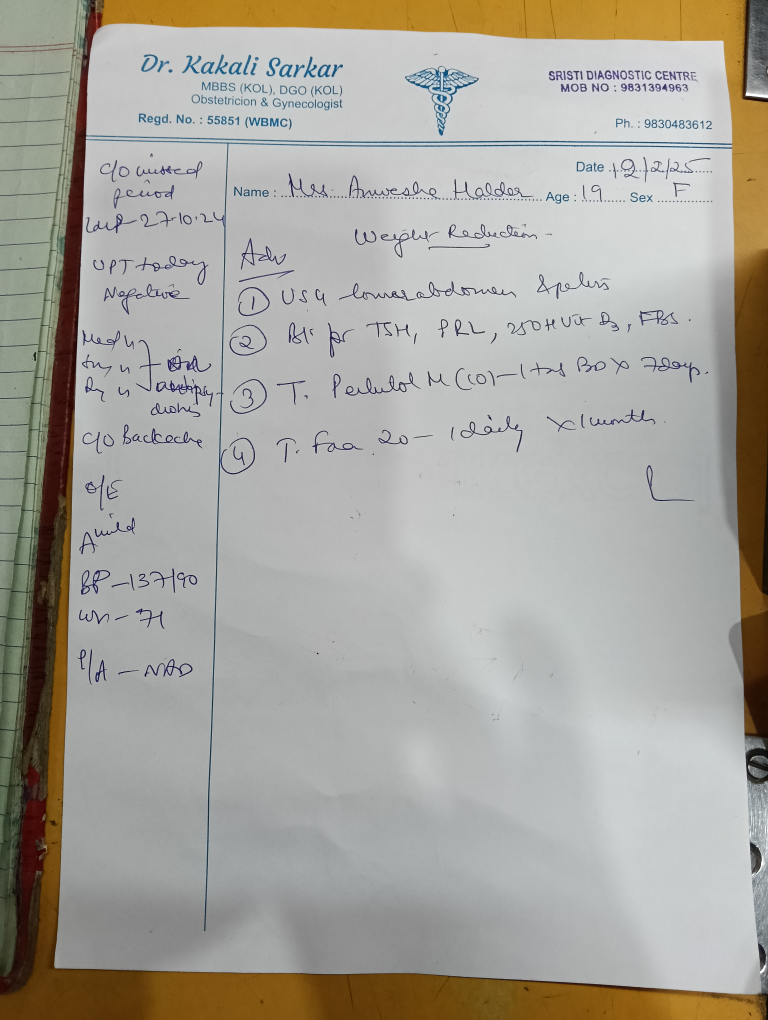 Dr. Kakali Sarkar
MBBS (KOL), DGO (KOL)
Obstetricion & Gynecologist
Regd. No. : 55851 (WBMC)
SRISTI DIAGNOSTIC CENTRE
MOB NO : 9831394963
Ph. : 9830483612
Date 12/2/25
Name : Mrs. Anwesha Halder Age : 19 Sex F
c/o missed
period
LMP - 27.10.24
UPT today
Negative
Med
Sur
c/o Backache
O/E
A mild
BP - 137/90
Wt - 71
P/A - NAD
Weight Reduction -
Adv
① USG lower abdomen & pelvis
② Bl. for TSH, PRL, 25OH Vit D3, FBS.
③ T. M (10) - 1 tab BD x 7 days.
④ T. Faa 20 - 1 daily x 1 month.